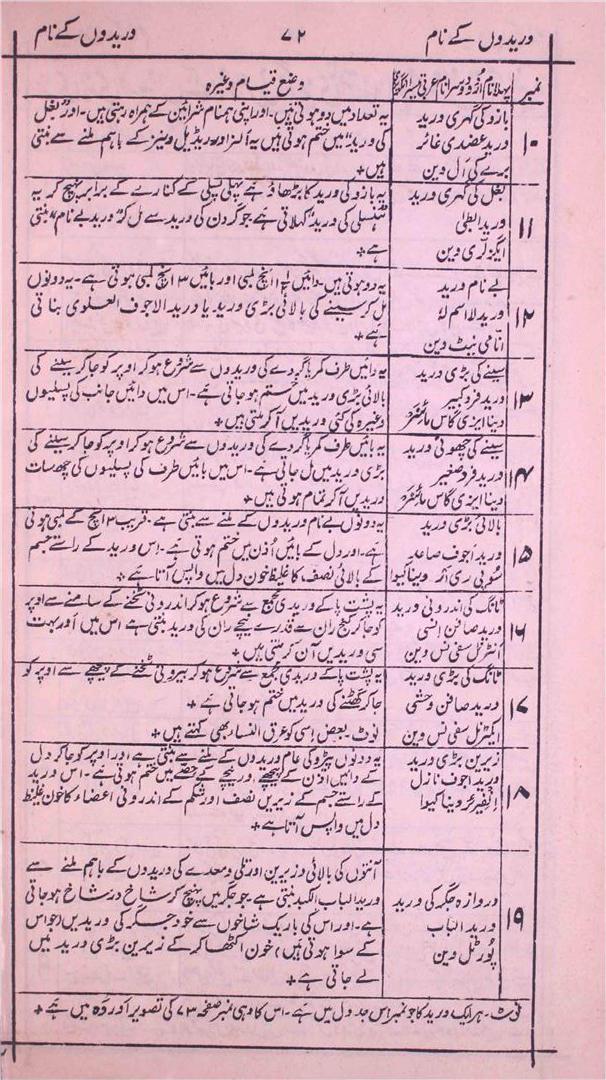 وریدوں کے نام
۷۲
وریدوں کے نام
نمبر
پہلا نام اُردو دوسرا نام عربی تیسرا انگریزی
وضع قیام وغیرہ
۱۰
بازو کی گہری ورید
ورید عضدی غائر
برے کی اَل وین
یہ تعداد میں دو ہوتی ہیں۔ اور اپنی ہمنام شرائین کے ہمراہ رہتی ہیں۔ اور "بغل
کی ورید" میں ختم ہوتی ہیں یہ اَلنر اور ریڈیل وینز کے باہم ملنے سے بنتی
ہیں +
۱۱
بغل کی گہری ورید
ورید ابطی
ایگزلَری وین
یہ بازو کی ورید کا بڑھاؤ ہے پہلی پسلی کے کنارے کے برابر پہنچ کر یہ
ہنسلی کی ورید" کہلاتی ہے جو گردن کی ورید سے مل کر "ورید بے نام" بنتی
ہے +
۱۲
بے نام ورید
ورید لااسم لہٗ
انّامی نیٹ وین
یہ دو ہوتی ہیں۔ دائیں ۱½ انچ لمبی اور بائیں ۳ انچ لمبی ہوتی ہے۔ یہ دونوں
مل کر سینے کی بالائی بڑی ورید یا ورید الاجوف العلوی بناتی
ہے +
۱۳
سینے کی بڑی ورید
ورید فرد کبیر
وینا ایزی گاس مائنر
یہ دائیں طرف کمر یا گردے کی وریدوں سے شروع ہو کر اوپر کو جا کر سینے کی
بالائی بڑی ورید میں ختم ہو جاتی ہے۔ اس میں دائیں جانب کی پسلیوں
وغیرہ کی کئی وریدیں آ کر ملتی ہیں +
۱۴
سینے کی چھوٹی ورید
ورید فرد صغیر
وینا ایزی گاس مائنر
یہ بائیں طرف کمر یا گردے کی وریدوں سے شروع ہو کر اوپر کو جا کر سینے کی
بڑی ورید میں مل جاتی ہے۔ اس میں بائیں طرف کی پسلیوں کی چھ سات
وریدیں آ کر تمام ہوتی ہیں +
۱۵
بالائی بڑی ورید
ورید اجوف صاعد
سُوپی ری اَر ویناکیوا
یہ دونوں بے نام وریدوں کے ملنے سے بنتی ہے۔ قریب ۳ انچ کے لمبی ہوتی
ہے۔ اور دل کے بائیں اُذن میں ختم ہوتی ہے۔ اس ورید کے راستے جسم
کے بالائی نصف کا غلیظ خون دل میں واپس آتا ہے +
۱۶
ٹانگ کی اندرونی ورید
ورید صافن اِنسی
انٹرنل سفی نس وین
یہ پشت پا کے وریدی مجمع سے شروع ہو کر اندرونی ٹخنے کے سامنے سے اوپر
کو جا کر کنج ران سے قدرے نیچے ران کی ورید بنتی ہے اس میں اور بہت
سی وریدیں آن کر ملتی ہیں +
۱۷
ٹانگ کی بڑی ورید
ورید صافن وحشی
ایکٹرنل سفی نس وین
یہ پشت پا کے وریدی مجمع سے شروع ہو کر بیرونی ٹخنے کے پیچھے سے اوپر کو
جا کر گھٹنے کی ورید میں ختم ہو جاتی ہے +
نوٹ بعض اِسی کو عرق النسا بھی کہتے ہیں +
۱۸
زیریں بڑی ورید
ورید اجوف نازل
اِنفیریَر ویناکیوا
یہ دونوں پیڑو کی عام وریدوں کے ملنے سے بنتی ہے اور اوپر کو جا کر دل
کے دائیں اُذن کے پیچھے اور نیچے کے حصے میں ختم ہوتی ہے۔ اس ورید
کے راستے جسم کے زیریں نصف اور شکم کے اندرونی اعضاء کا خون غلیظ
دل میں واپس آتا ہے +
۱۹
دروازہ جگر کی ورید
ورید الباب
پُورٹل وین
آنتوں کی بالائی و زیریں اور تلی و معدے کی وریدوں کے باہم ملنے سے
ورید الباب الکبد بنتی ہے۔ جو جگر میں پہنچ کر شاخ در شاخ ہو جاتی
ہے۔ اور اس کی باریک شاخوں سے خود جگر کی وریدیں (جو اس
کے سوا ہوتی ہیں) خون اکٹھا کر کے زیریں بڑی ورید میں
لے جاتی ہے +
نوٹ۔ ہر ایک ورید کا جو نمبر اس جدول میں ہے۔ اس کا وہی نمبر صفحہ ۷۳ کی تصویر اوردہ میں ہے +